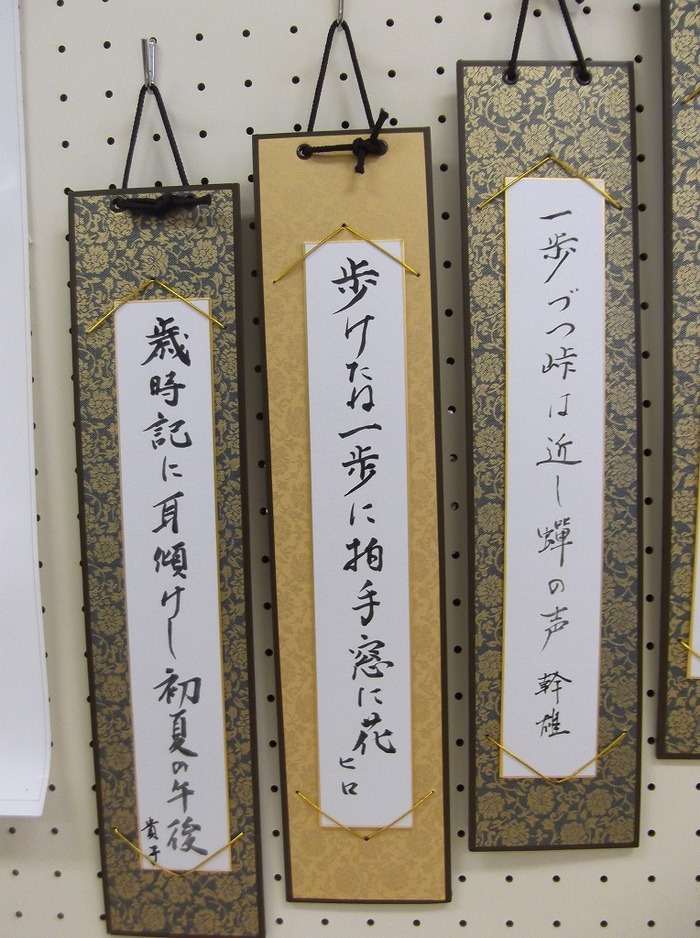 一歩づつ峠は近し蟬の声
幹雄
歩けたね一歩に拍手窓に花
ヒロ
歳時記に耳傾けし初夏の午後
貴子